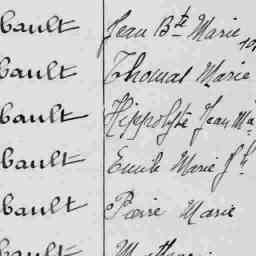 bault Jean Bte Marie
bault Thomas Marie
bault Hippolyte Jean Ma
bault Emile Marie Jh
bault Pierre Marie
bault